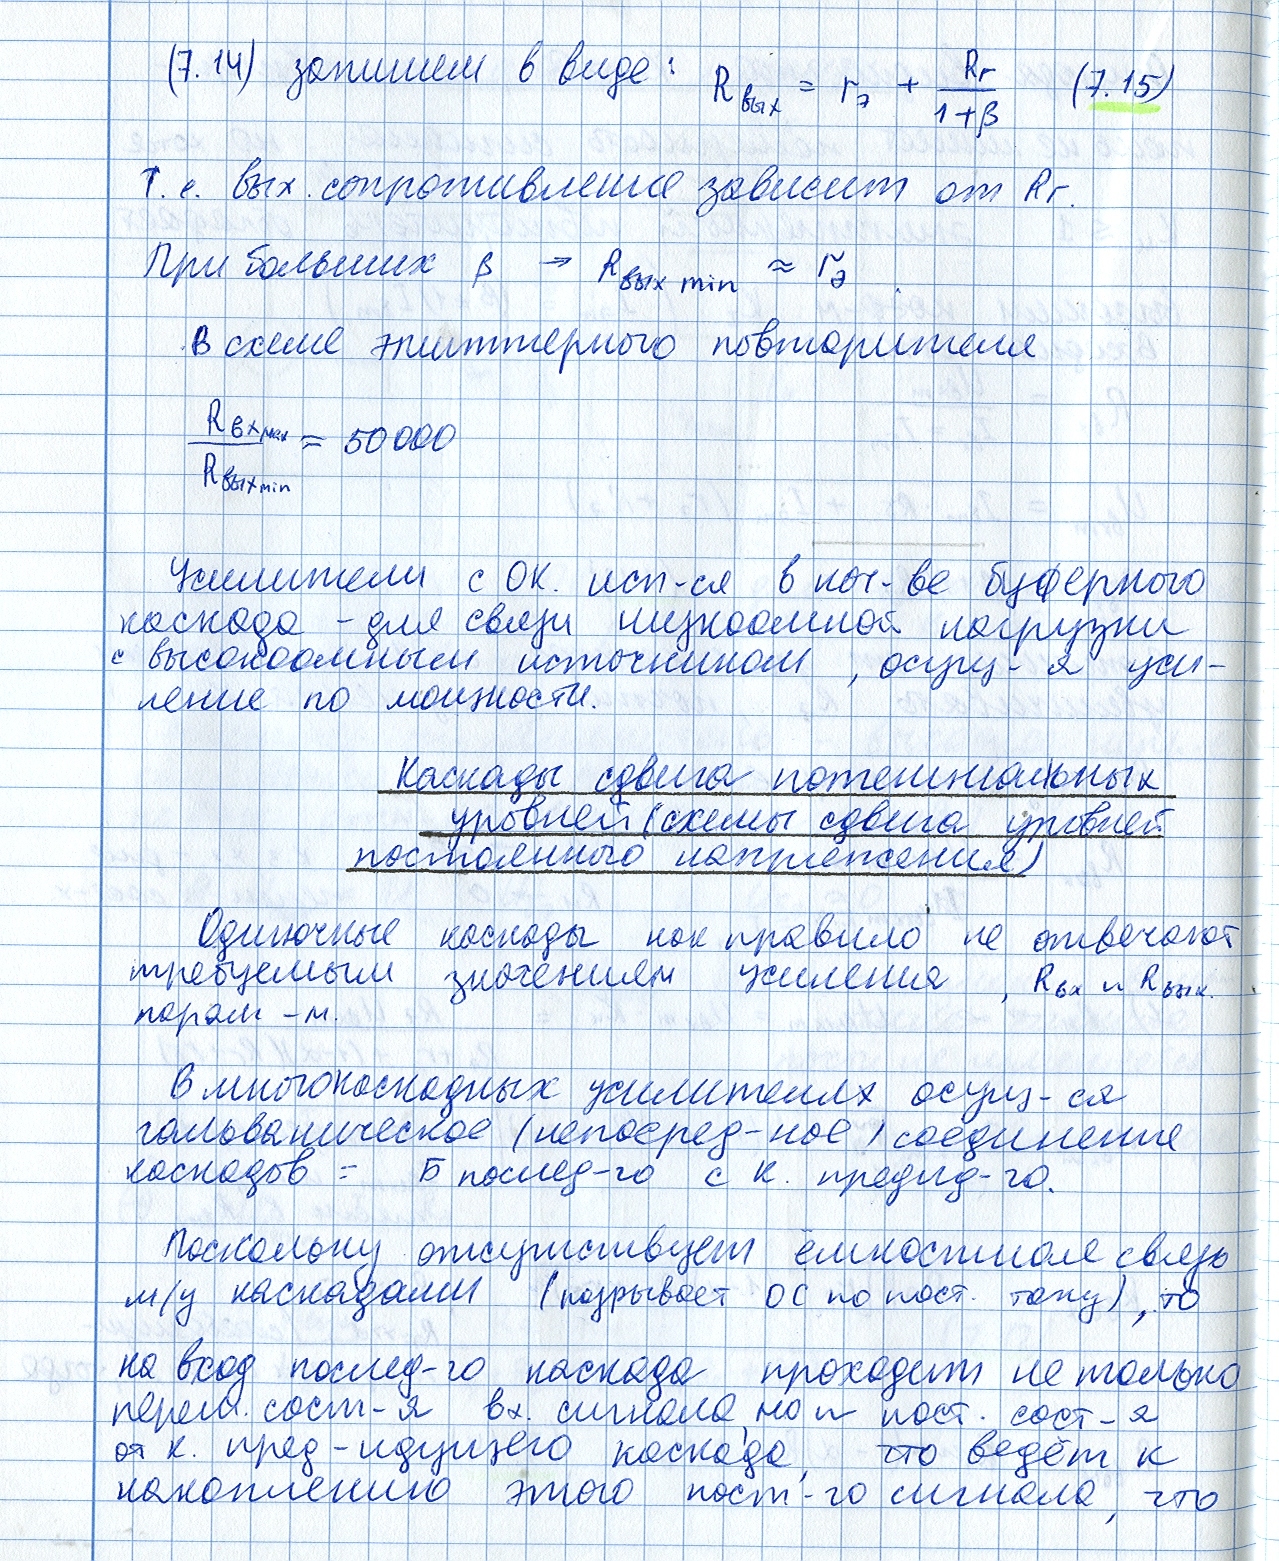 (7.14) запишем в виде: Rвых = rэ + Rг / (1+β) (7.15)
Т.е. вых. сопротивление зависит от Rг.
При больших β → Rвых min ≈ rэ.
В схеме эмиттерного повторителя
Rвх max / Rвых min ≈ 50000
Усилители с ОК. исп-ся в кач-ве буферного
каскада – для связи низкоомной нагрузки
с высокоомным источником, осущ-я уси-
ление по мощности.
Каскады сдвига потенциальных
уровней (схемы сдвига уровней
постоянного напряжения)
Одиночные каскады как правило не отвечают
требуемым значениям усиления, Rвх и Rвых.
парам-м.
В многокаскадных усилителях осущ-ся
гальваническое (непосред-ное) соединение
каскадов = Б послед-го с К. предыд-го.
Поскольку отсутствует ёмкостная связь
м/у каскадами (разрывает ОС по пост. току), то
на вход послед-го каскада проходит не только
перем. сост-я вх. сигнала, но и пост. сост-я
от К. пред-идущего каскада, что ведёт к
накоплению этого пост-го сигнала, что